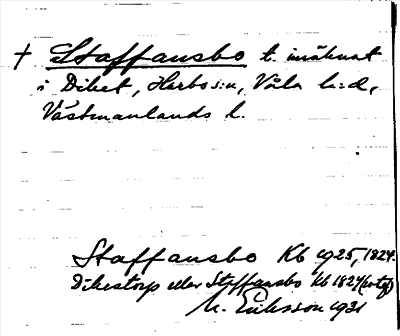 † Staffansbo t. inäknat
i Diket, Harbo s:n, Våla h:d,
Västmanlands l.
Staffansbo Kb 1925, 1824.
Dikestorp eller Steffansbo Kb 1824
M. Eriksson 1931